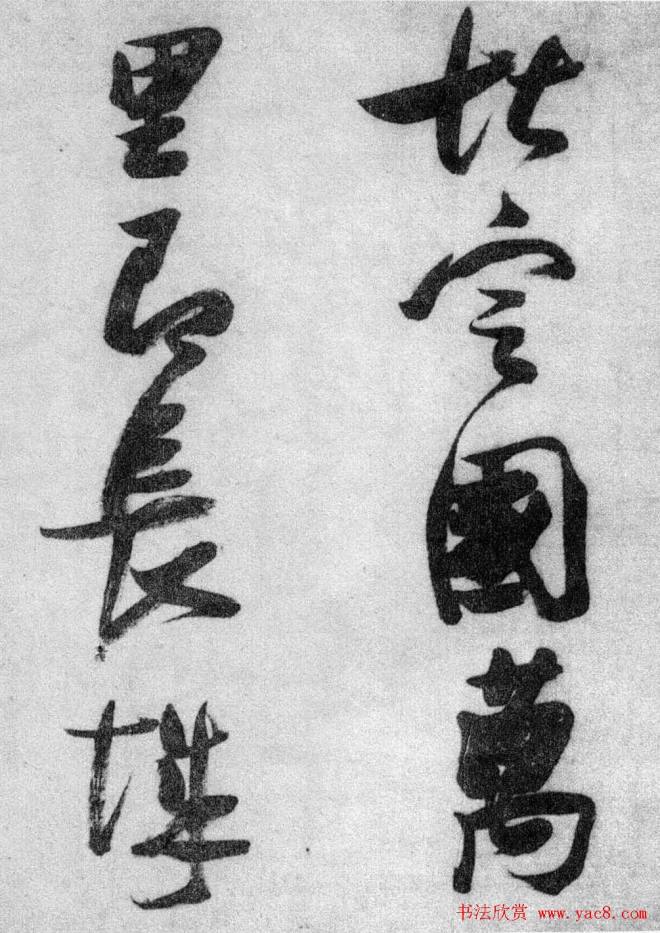 定國萬
里即長
书法欣赏 www.yac8.com